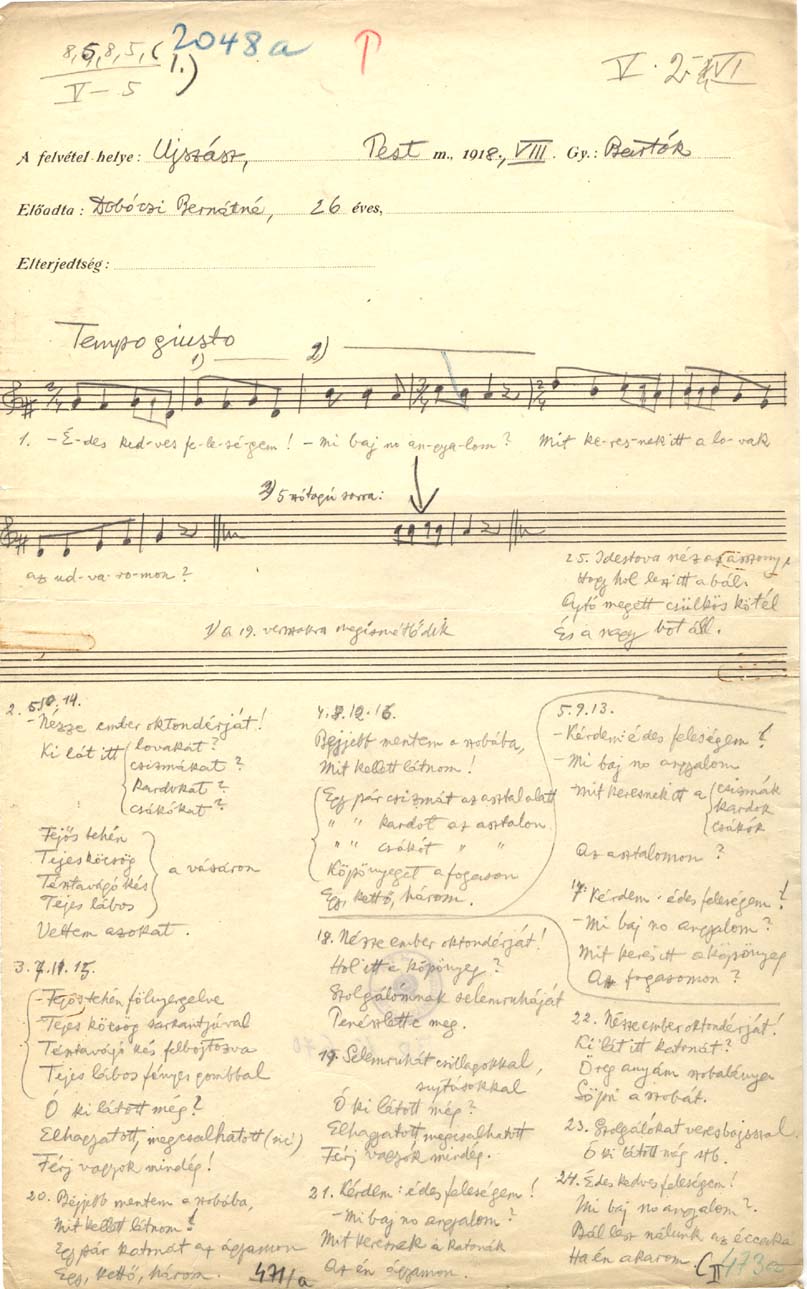 8,5,8,5,(
2048a
V–5
1.)
V. 2 VI
A felvétel helye: Ujszász, Pest m., 1918., VIII. Gy.: Bartók
Előadta: Dobóczi Bernátné, 26 éves,
Elterjedtség:
Tempo giusto
1) 2)
1. – É-des ked-ves fe-le-sé-gem! – Mi baj no an-gya-lom? Mit ke-res-nek itt a lo-vak
2) 5 szótagú sorra:
az ud-va-ro-mon?
1) a 19. versszakra megismétlődik
25. Idestova néz az asszony
Hogy hol lesz itt a bál.
Ajtó megett csülkös kötél
És a nagy bot áll.
2. 6. 10. 14.
– Nézze ember oktondérját!
Ki lát itt lovakat?
csizmákat?
kardokat?
csákókat?
Fejős tehén
Tejes köcsög
Tésztavágó kés
Tejes lábos
a vásáron
Vettem azokat.
3. 7. 11. 15.
– Fejős tehén fölnyergelve
Tejes köcsög sarkantyúval
Tésztavágó kés felbojtozva
Tejes lábos fényes gombbal
Ó ki látott még?
Elhagyatott, megcsalhatott (sic)
Férj vagyok mindég!
20. Béjjebb mentem a szobába,
Mit kellett látnom!
Egy pár katonát az ágyamon
Egy, kettő, három.
471/a
4. 8. 12. 16.
Béjjebb mentem a szobába,
Mit kellett látnom!
Egy pár csizmát az asztal alatt
" " kardot az asztalon
" " csákót " "
Köpönyeget a fogason
Egy, kettő, három.
18. Nézze ember oktondérját!
Hol itt a köpönyeg?
Szolgálómnak selemruháját
Penészlette meg.
19. Selemruhát csillagokkal,
sujtásokkal
Ó ki látott még?
Elhagyatott megcsalhatott
Férj vagyok mindég.
21. Kérdem: édes feleségem!
– Mi baj no angyalom?
Mit keresnek a katonák
Az én ágyamon.
5. 9. 13.
– Kérdem: édes feleségem!
– Mi baj no angyalom
– Mit keresnek itt a csizmák
kardok
csákók
Az asztalomon?
17. Kérdem: édes feleségem!
– Mi baj no angyalom?
Mit keres itt a köpönyeg
Az fogasomon?
22. Nézze ember oktondérját!
Ki lát itt katonát?
Öreg anyám szobalánya
Söpri a szobát.
23. Szolgálókat veresbojszszal
Ó ki látott még stb.
24. Édes kedves feleségem!
Mi baj no angyalom?
Bál lesz nálunk az éccaka
Ha én akarom.
(II 473a